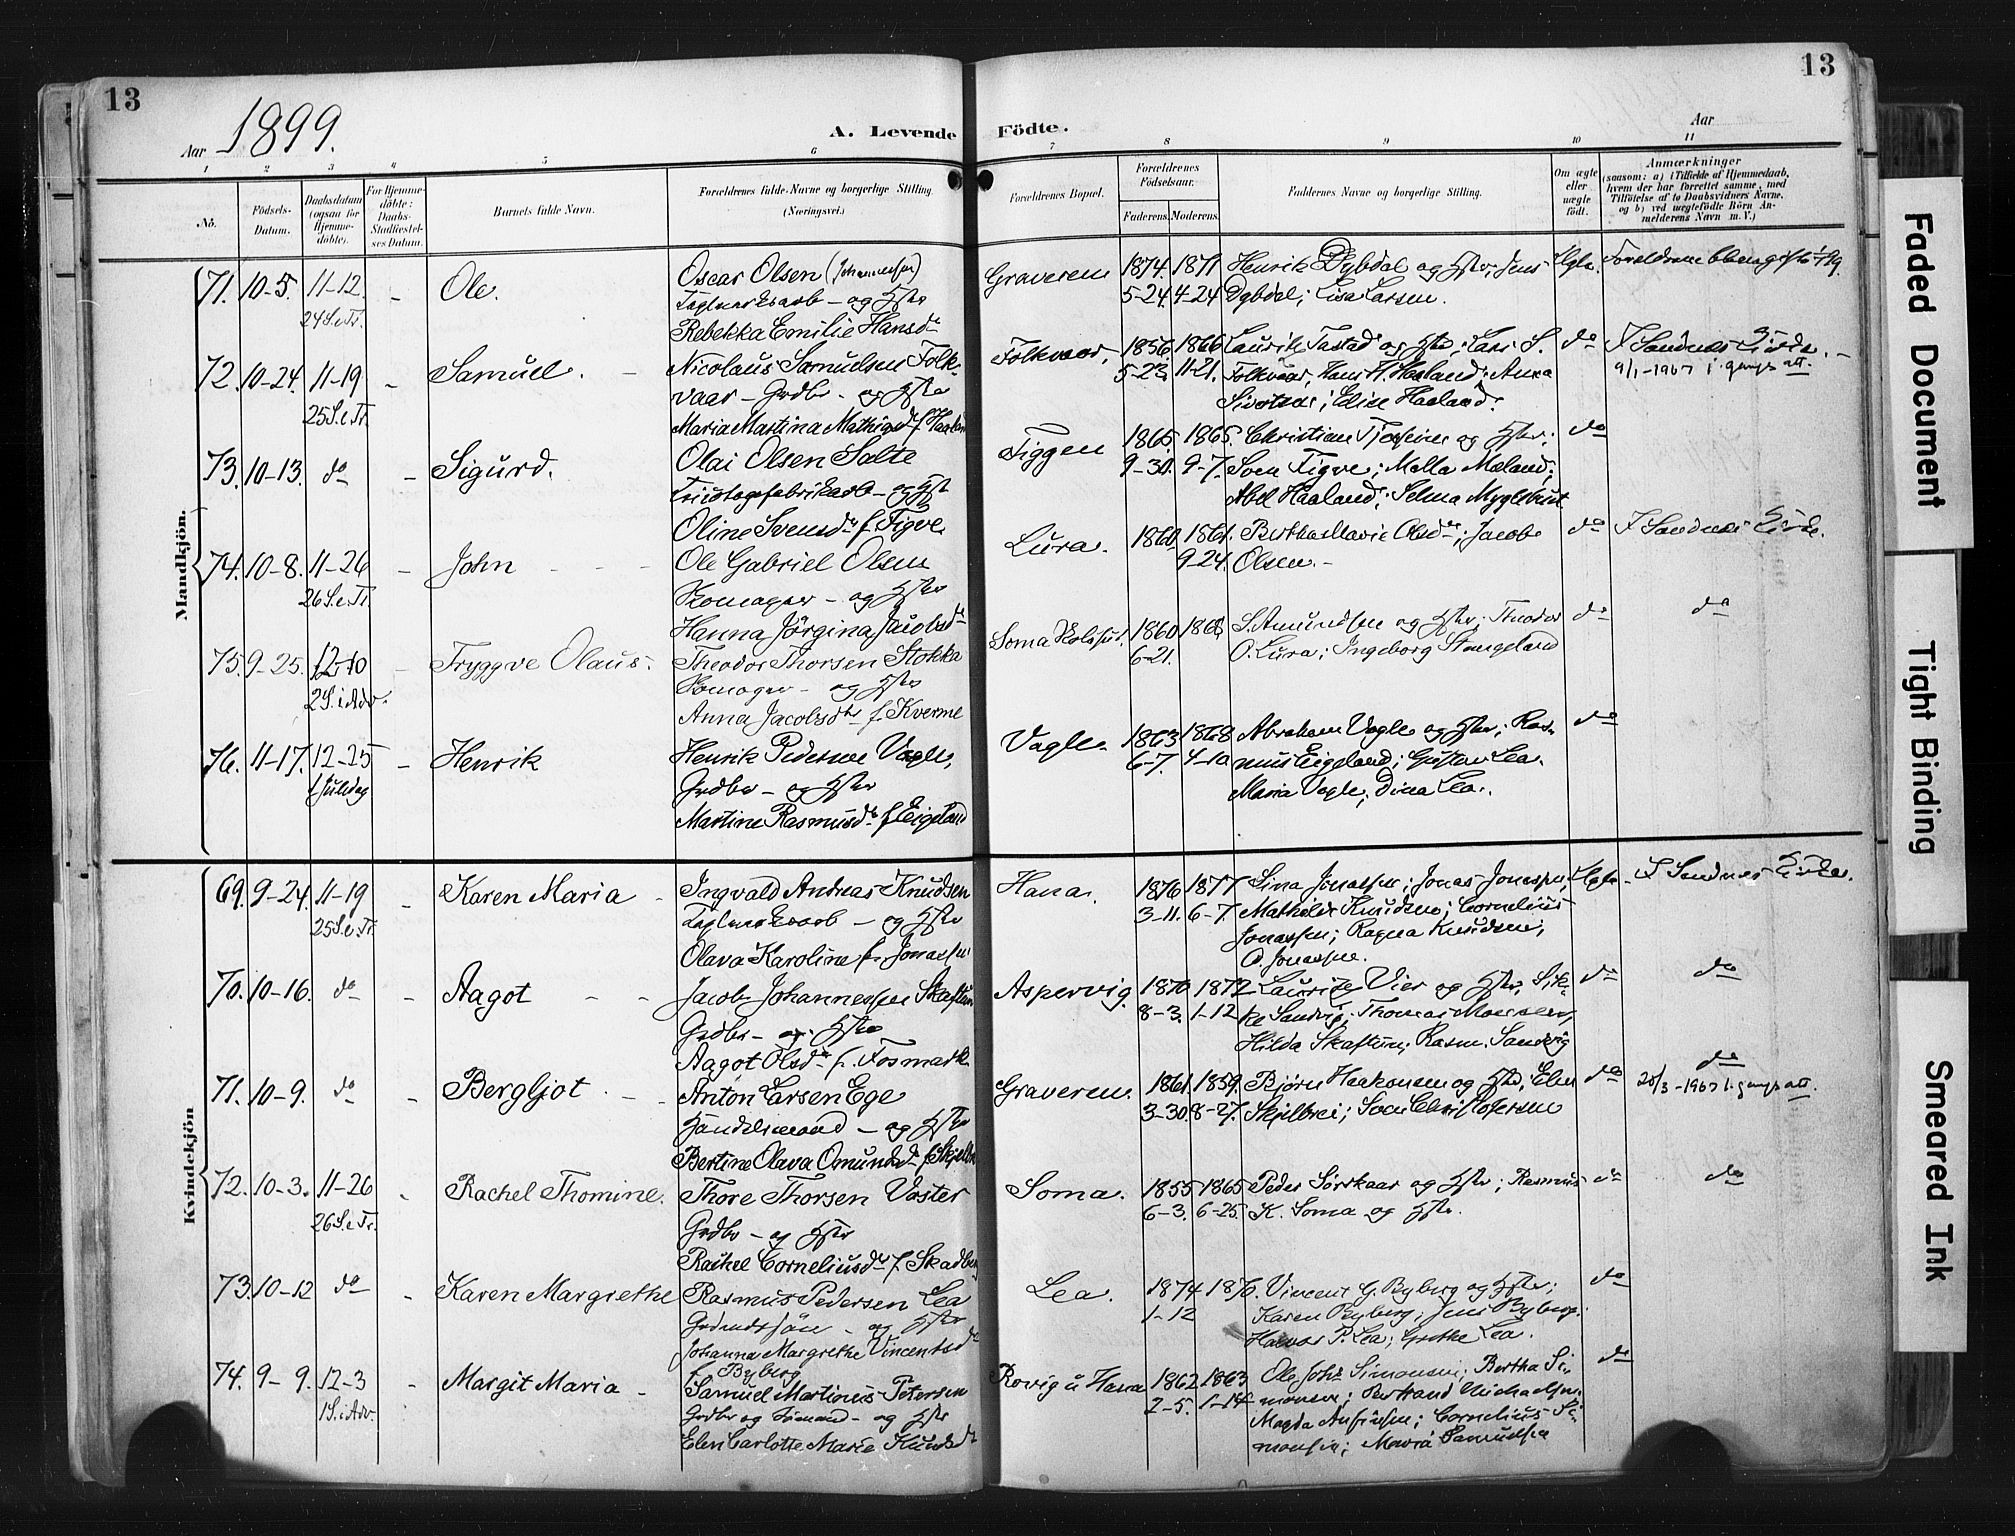 13
13
1899.
Aar
A. Levende Födte.
Aar
1 2 3 4 5 6 7 8 9 10 11
No.
Födsels-Datum.
Daabsdatum (ogsaa for Hjemme-döbte).
For Hjemme-döbte: Daabs-Stadfæstel-ses Datum.
Barnets fulde Navn.
Forældrenes fulde Navne og borgerlige Stilling. (Næringsvei.)
Forældrenes Bopæl.
Forældrenes Födselsaar.
Faderens. Moderens.
Faddernes Navne og borgerlige Stilling.
Om ægte eller uægte födt.
Anmærkninger (saasom: a) i Tilfælde af Hjemmedaab, hvem der har forrettet samme, med Tilföielse af to Daabsvidners Navne, og b) ved uægtefödte Börn An-melderens Navn m. V.)
Mandkjön.
71. 10-5. 11-12. 24 S. e. Tr. - Ole.
Oscar Olsen (Johannessen)
Teglverksarb - og Hstr
Rebekka Emilie Hansd
Graveren 1874. 5-24 1871 4-24
Henrik Dybdal og Hstr; Jens
Dybdal; Lisa Larsen.
Ægte.
72. 10-24. 11-19 25 S. e. Tr. - Samuel.
Nicolaus Samuelsen Folk-
vaar - Grdbr - og Hstr
Maria Martina Mathiasd f. Haaland
Folkvaar. 1856. 5-23. 1866 11-21.
Lauritz Tastad og Hstr; Lars S.
Folkvaar, Hans H. Haaland; Anna
Sivertsen; Elise Haaland.
do
I Sandnes Kirke.
9/1-1967 1. gangs att.
73. 10-13. do - Sigurd.
Olai Olsen Salte
Tricotagefabrikarb - og Hstr
Oline Svensd f. Figve.
Figgen 1865 9-30. 1865. 9-7.
Christian Tjosheim og Hstr;
Sven Figve; Malla Mæland;
Abel Haaland; Selma Myglebust
do
74. 10-8. 11-26 26 S. e. Tr. - John
Ole Gabriel Olsen
Skomager - og Hstr
Hanna Jörgina Jacobsd
Lura. 1860. 1861. 9-24.
Bertha Marie Olsd; Jacob
Olsen. -
do
I Sandnes Kirke.
75. 9-25. 12-10 2 S. i Adv. - Tryggve Olaus.
Theodor Thorsen Stokka
Skomager - og Hstr
Anna Jacobsd f. Kverme
Soma 1860 6-21. 1868
S. Amundsen og Hstr; Theodor
O. Lura; Ingeborg Stangeland
do
do
76. 11-17. 12-25 1 Juledag - Henrik
Henrik Pedersen Vagle,
Grdbr - og Hstr
Martine Rasmusd f. Eigeland
Vagle 1863 6-7. 1868 4-10
Abraham Vagle og Hstr; Ras-
mus Eigeland; Gustav Lea.
Maria Vagle, Dina Lea.
do
Kvindekjön
69. 9-24. 11-19 25 S. e. Tr. - Karen Maria
Ingvald Andreas Knudsen
Teglverksarb - og Hstr
Olava Karoline f. Jonassen
Hana. 1876 3-11. 1877 6-7
Lina Jonassen; Jonas Jonassen;
Mathilde Knudsen; Cornelius
Jonassen; Ragna Knudsen;
O. Jonassen.
Ægte
I Sandnes Kirke.
70. 10-16. do - Aagot
Jacob Johannessen Skaftun
Grdbr - og Hstr
Aagot Olsd f. Fosmark
Aspervig. 1870 8-3. 1872 1-12
Lauritz Vier og Hstr, Sik-
ke Sandvig; Thomas
Hilda Skaftun; Rasm. Sandvig
do
do
71. 10-9. do - Bergljot.
Anton Larsen Ege
Handelsmand - og Hstr
Bertine Olava Omundsd f. Skjelbrei
Graveren. 1861. 3-30. 1859. 8-27.
Bjørn Haakonsen og Hstr; Elen
Skjelbrei; Sven Christofersen
do
do
20/3-1967 1. gangs att.
72. 10-3. 11-26 26 S. e. Tr. - Rachel Thomine.
Thore Thorsen Vaster
Grdbr - og Hstr
Rachel Corneliusd f. Skadberg
Soma. 1855 6-3. 1865 6-25.
Peder Sörskaar og Hstr; Rasmus
K. Soma og Hstr.
do
do
73. 10-12 do - Karen Margrethe
Rasmus Pedersen Lea
og Hstr
Johanna Margrethe Vincentsd
f. Byberg
Lea. 1874 1-12 1876.
Vincent G. Byberg og Hstr;
Karen Byberg; Jens Byberg.
Halvor P. Lea; Grethe Lea.
do
74. 9-9. 12-3 1 S. i Adv. - Margit Maria
Samuel Martinus Petersen
Grdbr og Sömand - og Hstr
Elen Carlotte Marie Knudsd
Rovig u Hana 1862 2-5. 1863 1-14
Ole Johs Simonsen; Bertha Si-
monsen; Bertrand Michaelsen.
Magda Anfinsen; Cornelius Si-
monsen; Maria Samuelsen
do
Faded Document
Tight Binding
Smeared Ink